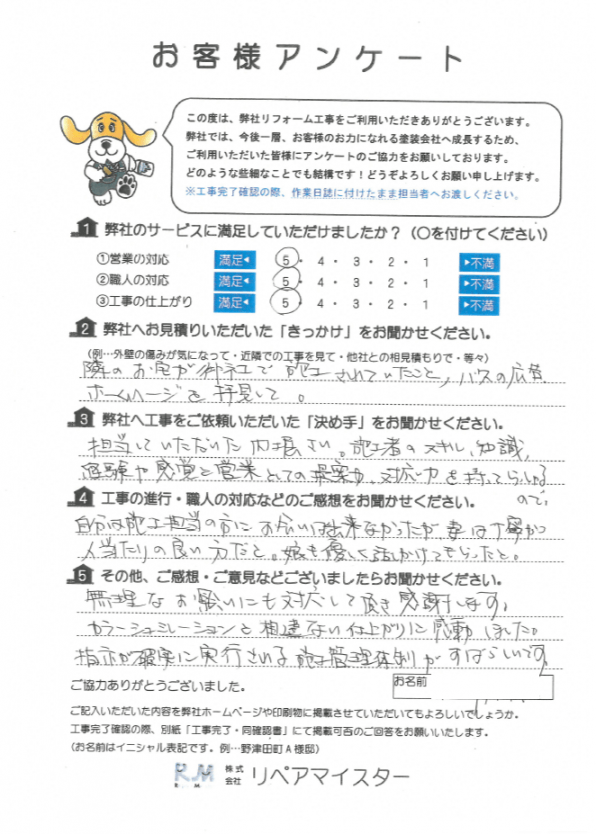 お客様アンケート
この度は、弊社リフォーム工事をご利用いただきありがとうございます。
弊社では、今後一層、お客様のお力になれる塗装会社へ成長するため、
ご利用いただいた皆様にアンケートのご協力をお願いしております。
どのような些細なことでも結構です！どうぞよろしくお願い申し上げます。
※工事完了確認の際、作業日誌に付けたまま担当者へお渡しください。
1 弊社のサービスに満足していただけましたか？（〇を付けてください）
①営業の対応 満足◀ 5・4・3・2・1 ▶不満
②職人の対応 満足◀ 5・4・3・2・1 ▶不満
③工事の仕上がり 満足◀ 5・4・3・2・1 ▶不満
2 弊社へお見積りいただいた「きっかけ」をお聞かせください。
（例…外壁の傷みが気になって・近隣での工事を見て・他社との相見積もりで・等々）
隣のお宅が御社で施工されていたこと，バスの広告
ホームページを拝見して。
3 弊社へ工事をご依頼いただいた「決め手」をお聞かせください。
担当していただいた内堀さい。施工者のスキル，知識，
経験や感覚と営業としての提案力，対応力を持ってらっしゃる
ので，
4 工事の進行・職人の対応などのご感想をお聞かせください。
自分は施工担当の方にお会い出来なかったが，妻は丁寧か
人当たりの良い方だと。娘も優しく話かけてもらったと。
5 その他、ご感想・ご意見などございましたらお聞かせください。
無理なお願いにも対応して頂き感謝します，
カラーシュミレーションと相違ない仕上がりに感動しました。
指示が確実に実行される施工管理体制がすばらしいです。
ご協力ありがとうございました。
お名前
ご記入いただいた内容を弊社ホームページや印刷物に掲載させていただいてもよろしいでしょうか。
工事完了確認の際、別紙「工事完了・同確認書」にて掲載可否のご回答をお願いいたします。
（お名前はイニシャル表記です。例…野津田町A様邸）
R.M 株式会社 リペアマイスター